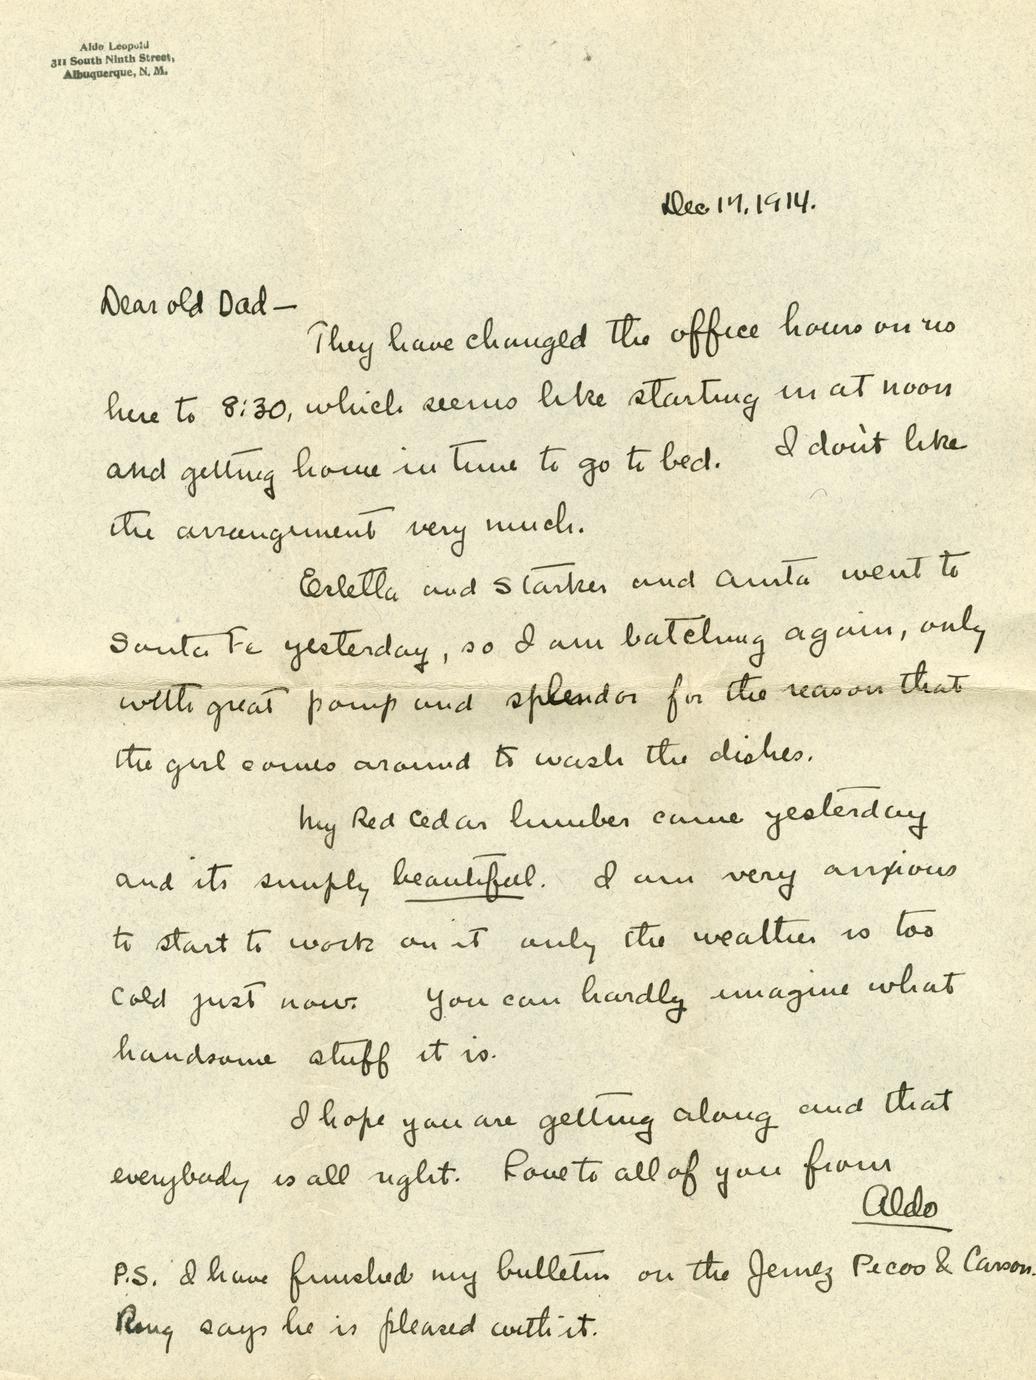 Aldo Leopold
311 South Ninth Street,
Albuquerque, N. M.
Dec 17, 1914.
Dear old Dad—
They have changed the office hours on us
here to 8:30, which seems like starting in at noon
and getting home in time to go to bed. I don't like
the arrangement very much.
Estella and Starker and Anita went to
Santa Fe yesterday, so I am batching again, only
with great pomp and splendor for the reason that
the girl comes around to wash the dishes.
My Red Cedar lumber came yesterday
and its simply beautiful. I am very anxious
to start to work on it only the weather is too
cold just now. You can hardly imagine what
handsome stuff it is.
I hope you are getting along and that
everybody is all right. Love to all of you from
Aldo
P.S. I have finished my bulletin on the Jemez Pecos & Carson.
Ring says he is pleased with it.